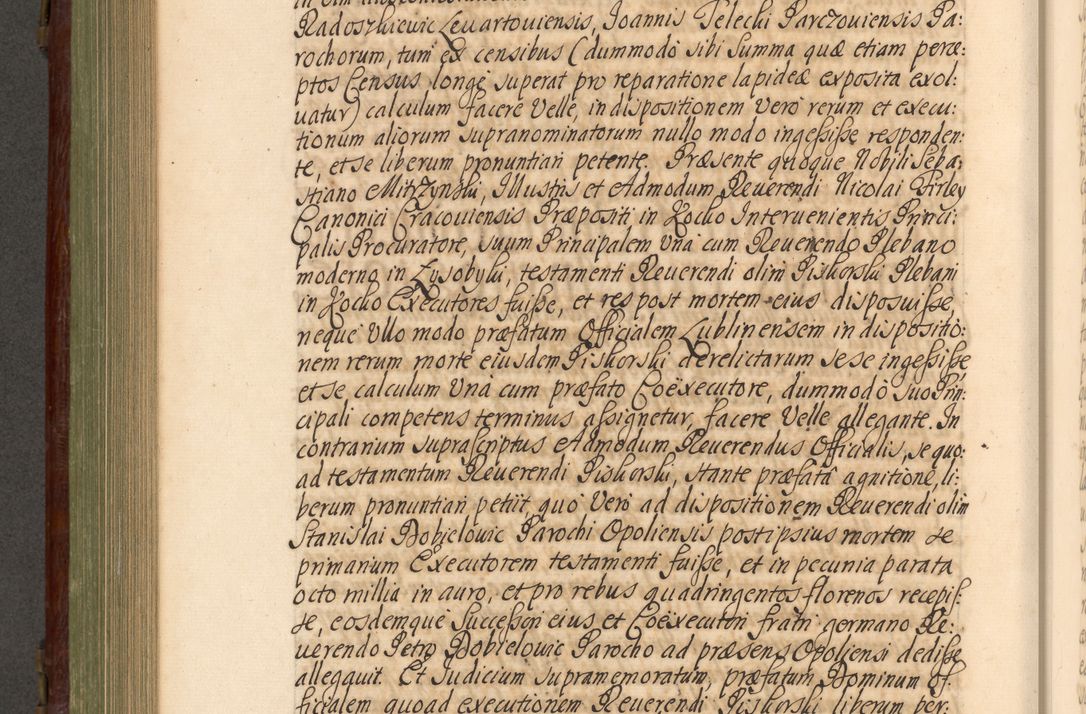 Radoszkiewic Levartoviensis, Joannis Telecki Parczoviensis Pa:
rochorum, tum ex censibus (dummodo sibi Summa quæ etiam perce:
ptos Census longè superat pro reparatione lapideæ exposita exol:
uatur) calculum facere Velle, in dispositionem Verò rerum et execu:
tionum aliorum supranominatorum nullo modo ingessisse responden:
te, et se liberum pronuntiari petente. Præsente quoque Nobili Seba:
stiano Mitrzynski, Illustris et Admodum Reuerendi Nicolai Firley
Canonici Cracouiensis Præpositi in Kocko Interuenientis Princi:
palis Procuratore, suum Principalem Unà cum Reuerendo Plebano
moderno in Lysobyki, testamenti Reuerendi olim Piskorski Plebani
in Kocko Executores fuisse, et res post mortem eius disposuisse,
neque Ullo modo præfatum Officialem Lublinensem in dispositio:
nem rerum morte eiusdem Piskorski derelictarum sese ingessisse
et se calculum Unà cum præfato Coëxecutore, dummodò suo Prin:
cipali competens terminus assignetur, facere Velle allegante. In
contrarium suprascriptus Admodum Reuerendus Officialis, se quo:
ad testamentum Reuerendi Piskorski, stante præfatâ agnitione, li:
berum pronuntiari petiit, quò Verò ad dispositionem Reuerendi olim
Stanislai Dobielowic Parochi Opoliensis post ipsius mortem se
primarium Executorem testamenti fuisse, et in pecunia parata
octo millia in auro, et pro rebus quadringentos florenos recepis:
se, eosdemque Successori eius et Coëxecutori fratri germano Re:
uerendo Petro Dobielowic Parocho ad præsens Opoliensi dedisse
allegauit. Et Judicium supramemoratum, præfatum Dominum Of:
ficialem quoad executionem Reuerendi Piskorski liberum per: